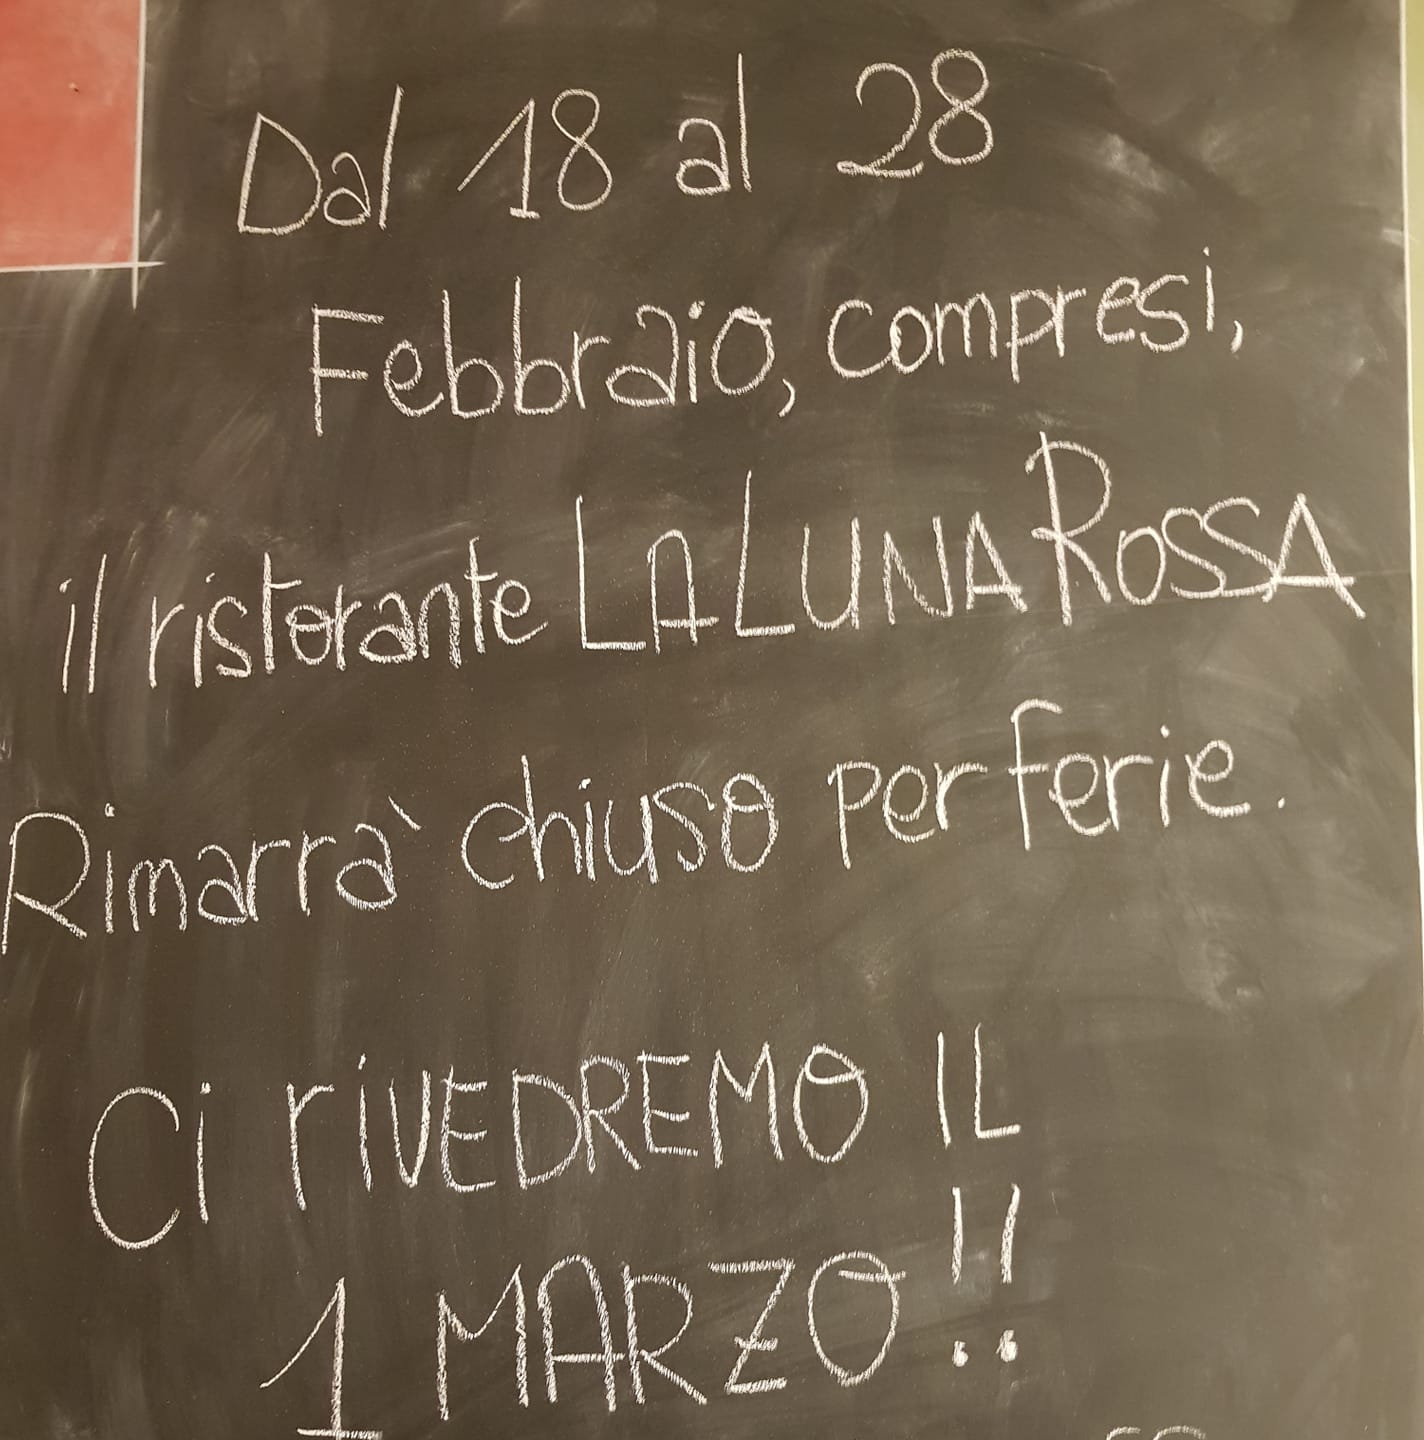 Dal 18 al 28
Febbraio, compresi,
il ristorante LA LUNA ROSSA
Rimarra' chiuso per ferie.
Ci riVEDREMO IL
1 MARZO!!